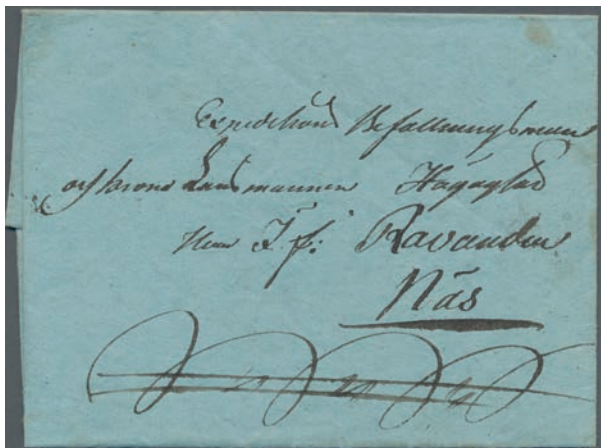 Expeditions Befallningsman
och krono Länsmannen Högaglad
Herr J. f: Ravander
Näs